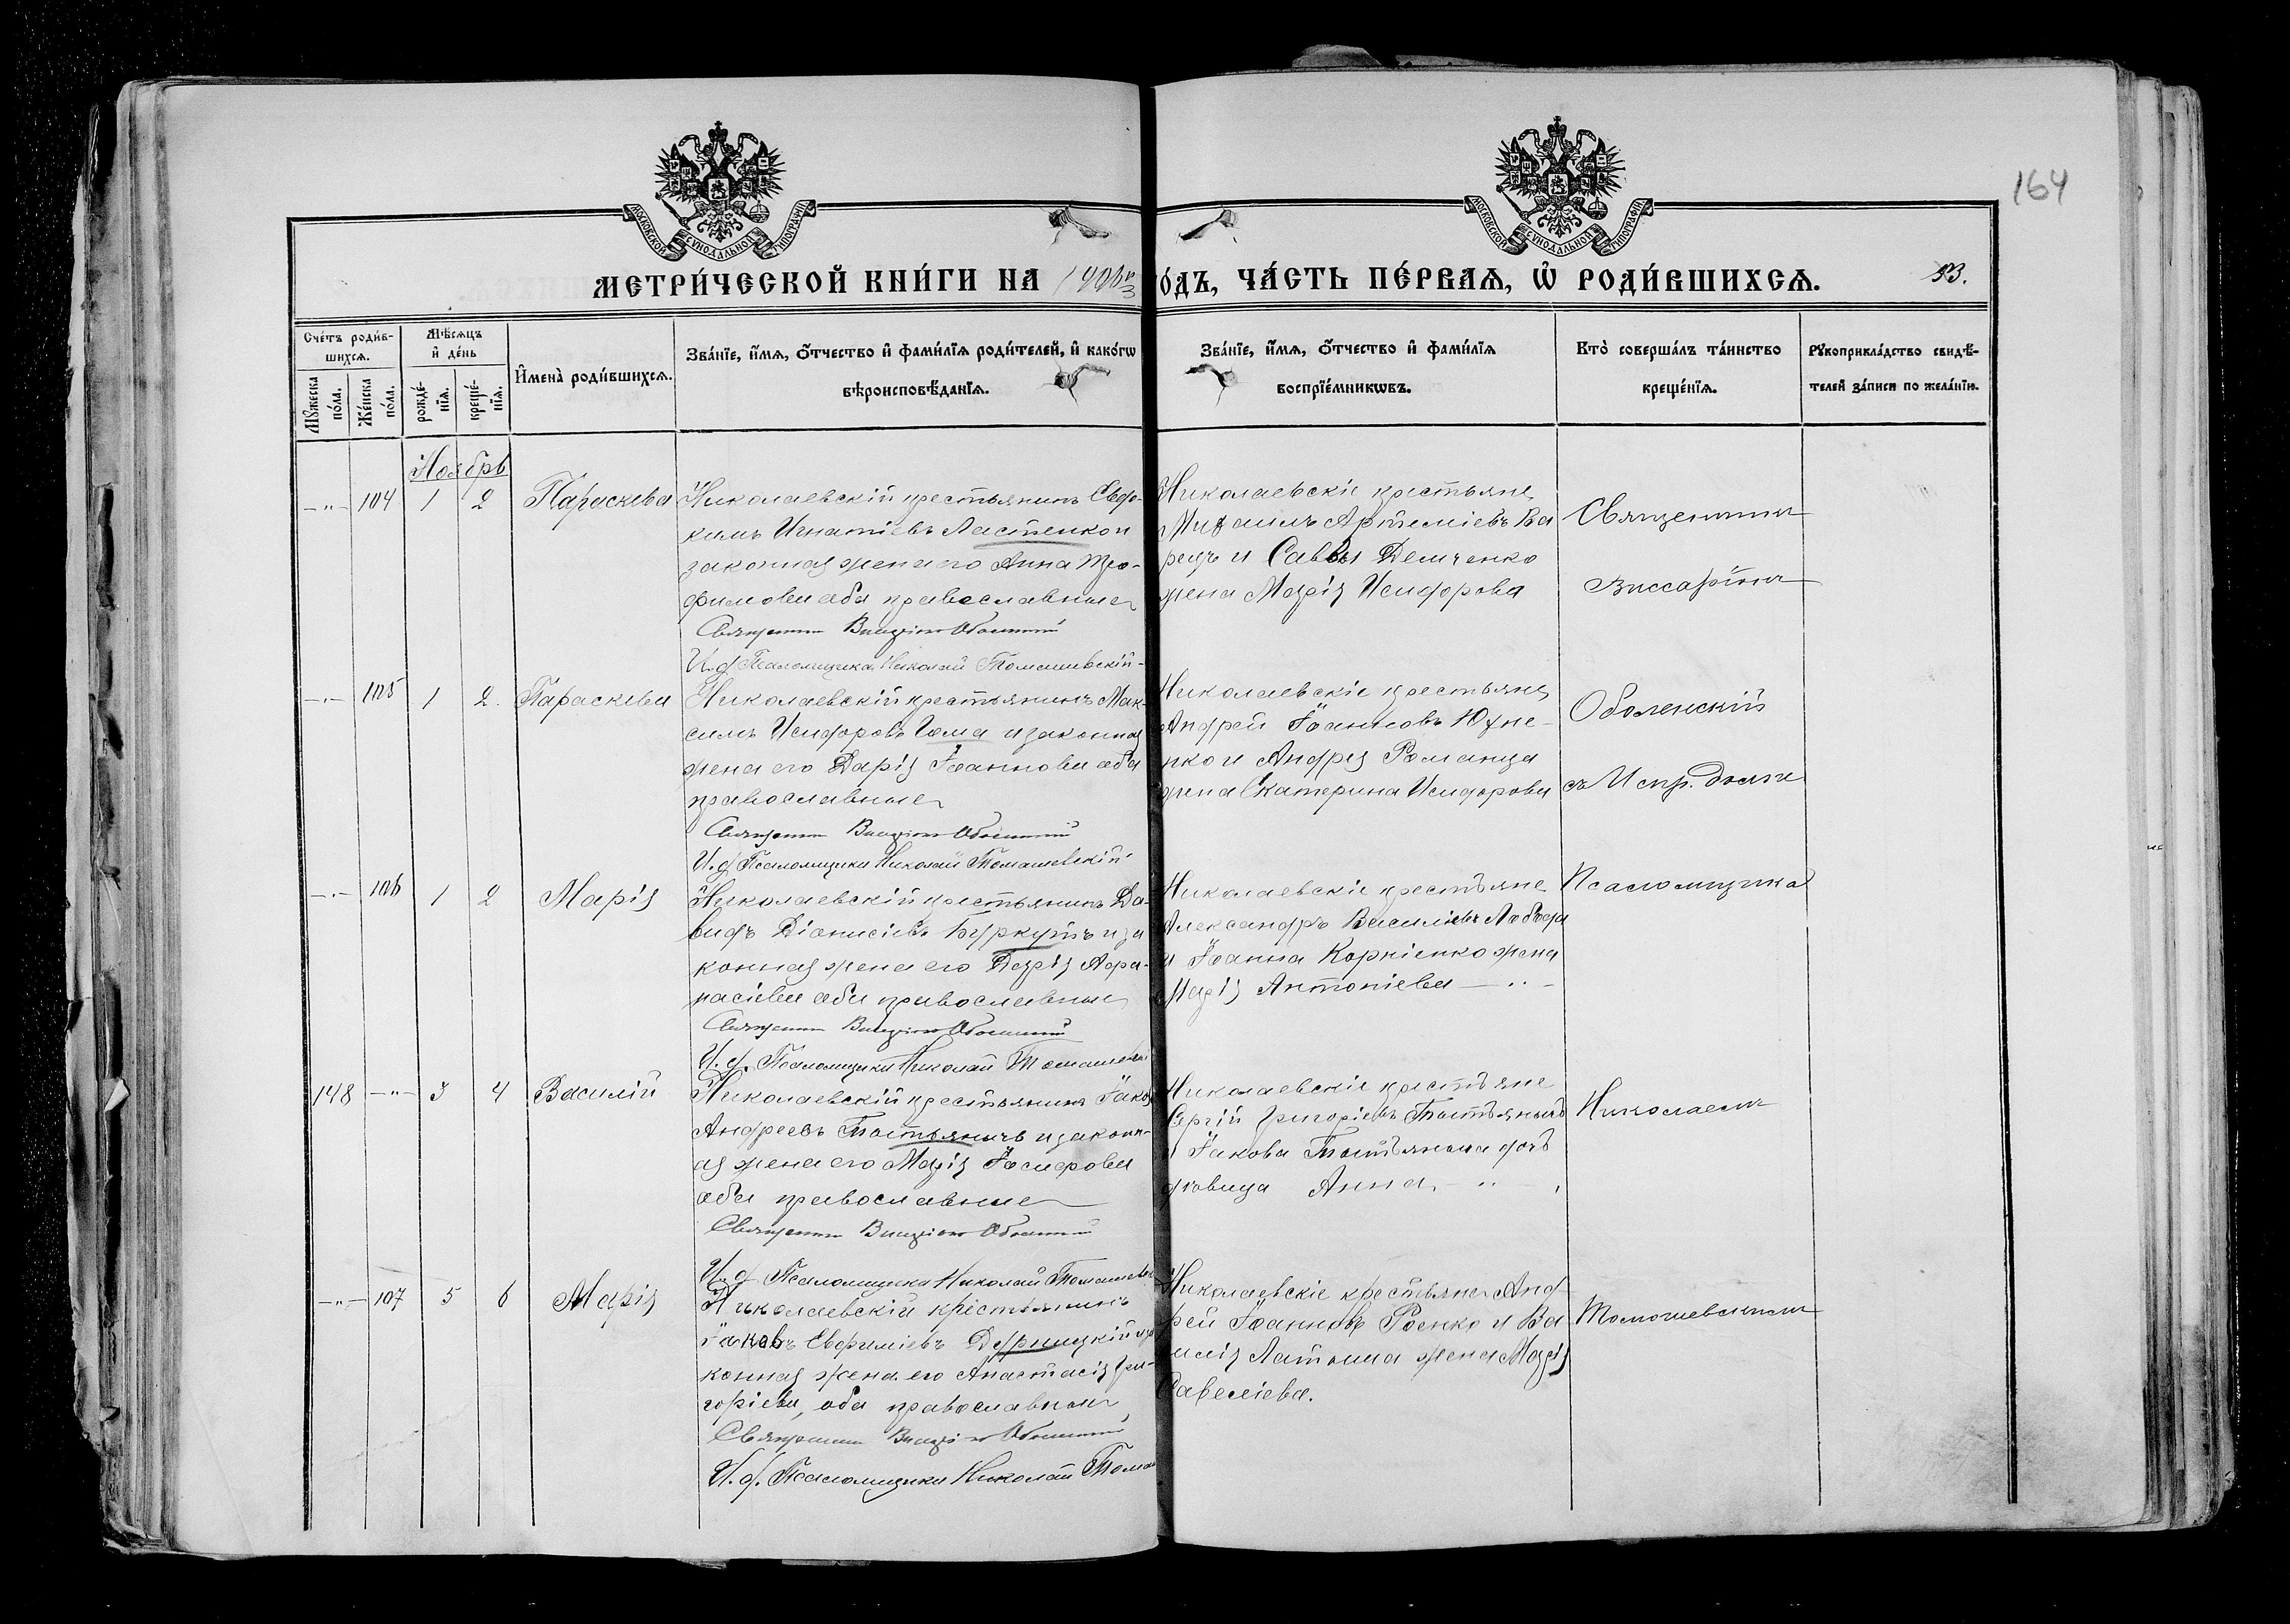 164
МОСКОВСКОЙ СѴНОДАЛЬНОЙ ТИПОГРАФІИ
МОСКОВСКОЙ СѴНОДАЛЬНОЙ ТИПОГРАФІИ
МЕТРИ́ЧЕСКОЙ КНИ́ГИ НА
О́ДЪ, ЧА́СТЬ ПЕ́РВАѦ, Ѡ҆ РОДИ́ВШИХСѦ.
53.
Сче́тъ роди́в-
шихсѧ.
Мꙋ́жеска по́ла.
Же́нска по́ла.
Мѣ́сѧцъ
и҆ де́нь
рожде́-
нїѧ.
креще́-
нїѧ.
И҆мена̀ роди́вшихсѧ.
Зва́нїе, и҆́мѧ, ѻ҆́тчество и҆ фами́лїѧ роди́телей, и҆ како́гѡ
вѣроисповѣ́данїѧ.
Зва́нїе, и҆́мѧ, ѻ҆́тчество и҆ фами́лїѧ
воспрїе́мникѡвъ.
Кто̀ соверша́лъ та́инство
креще́нїѧ.
Рꙋкоприкла́дство свидѣ́-
телей за́писи по жела́нїю.
Ноябрь
-"- 104 1 2 Параскева
Николаевскій крестьянинъ Евдо-
кимъ Игнатіевъ Ластенко и
законная жена его Анна Тро-
фимова оба православные
Священникъ Виссаріонъ Оболенскій
И. д. Псаломщика Николай Томашевскій
Николаевскіе крестьяне
Михаилъ Артеміевъ Ва
рецъ и Саввы Демченко
жена Марія Исидорова
-"- 105 1 2. Параскева
Николаевскій крестьянинъ Мак-
симъ Исидоровъ Гома и законная
жена его Дарія Іоаннова оба
православные
Священникъ Виссаріонъ Оболенскій
И. д. Псаломщика Николай Томашевскій
Николаевскіе крестьяне
Андрей Іоанновъ Юхне-
нко и Андрея Романца
жена Екатерина Исидорова
-"- 106 1 2 Марія
Николаевскій крестьянинъ Да-
видъ Діонисіевъ Буркутъ и за
конная жена его Дарія Афа-
насіева оба православные
Священникъ Виссаріонъ Оболенскій
И. д. Псаломщика Николай
Николаевскіе крестьяне
Александръ Василіевъ Лобода
и Іоанна Корніенко жена
Марія Антоніева
148 -"- 3 4 Василій
Николаевскій крестьянинъ Іаковъ
Андреевъ Тостьяничъ и законн-
ая жена его Марія Іосифова
оба православные
Священникъ Виссаріонъ Оболенскій
И. д. Псаломщика Николай
Николаевскіе крестьяне
Сергій Григоріевъ
и Іакова дочь
дѣвица Анна
-"- 107 5 6 Марія
Николаевскій крестьянинъ
Іаковъ Евфиміевъ и за
конная жена его Анастасія Гри-
горіева, оба православные
Священникъ Виссаріонъ Оболенскій
И. д. Псаломщика Николай Тома
Николаевскіе крестьяне Анд
рей Іоанновъ Роенко и Ва
силія жена Марія
Савеліева.
Священникъ
Виссаріонъ
Оболенскій
съ Испр. долж.
Псаломщика
Николаемъ
Томашевскимъ